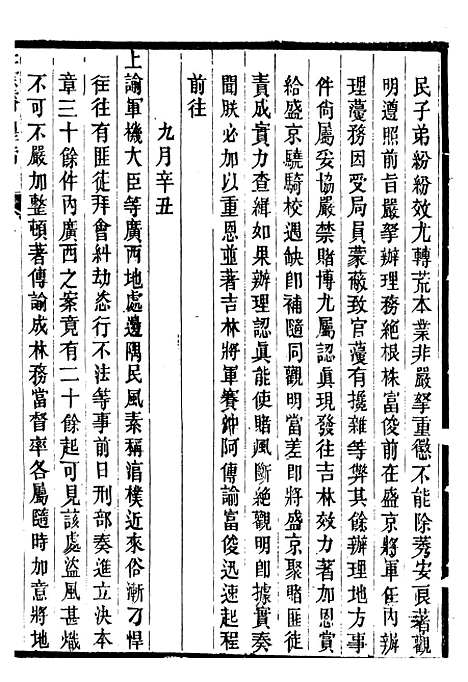 民子弟紛紛效尤轉荒本業非嚴拏重懲不能除莠安良著觀
明遵照前旨嚴拏辦理務絕根株富俊前在盛京將軍任內辦
理薓務因受局員蒙蔽致官薓有攙雜等弊其餘辦理地方事
件尙屬妥協嚴禁賭博尤屬認眞現發往吉林效力著加恩賞
給盛京驍騎校遇缺卽補隨同觀明當差卽將盛京聚賭匪徒
責成實力查緝如果辦理認眞能使賭風斷絕觀明卽據實奏
聞朕必加以重恩並著吉林將軍賽沖阿傳諭富俊迅速起程
前往
九月辛丑
上諭軍機大臣等廣西地處邊隅民風素稱湻樸近來俗漸刁悍
往往有匪徒拜會糾劫恣行不法等事前日刑部奏進立決本
章三十餘件內廣西之案竟有二十餘起可見該處盜風甚熾
不可不嚴加整頓著傳諭成林務當督率各屬隨時加意將地